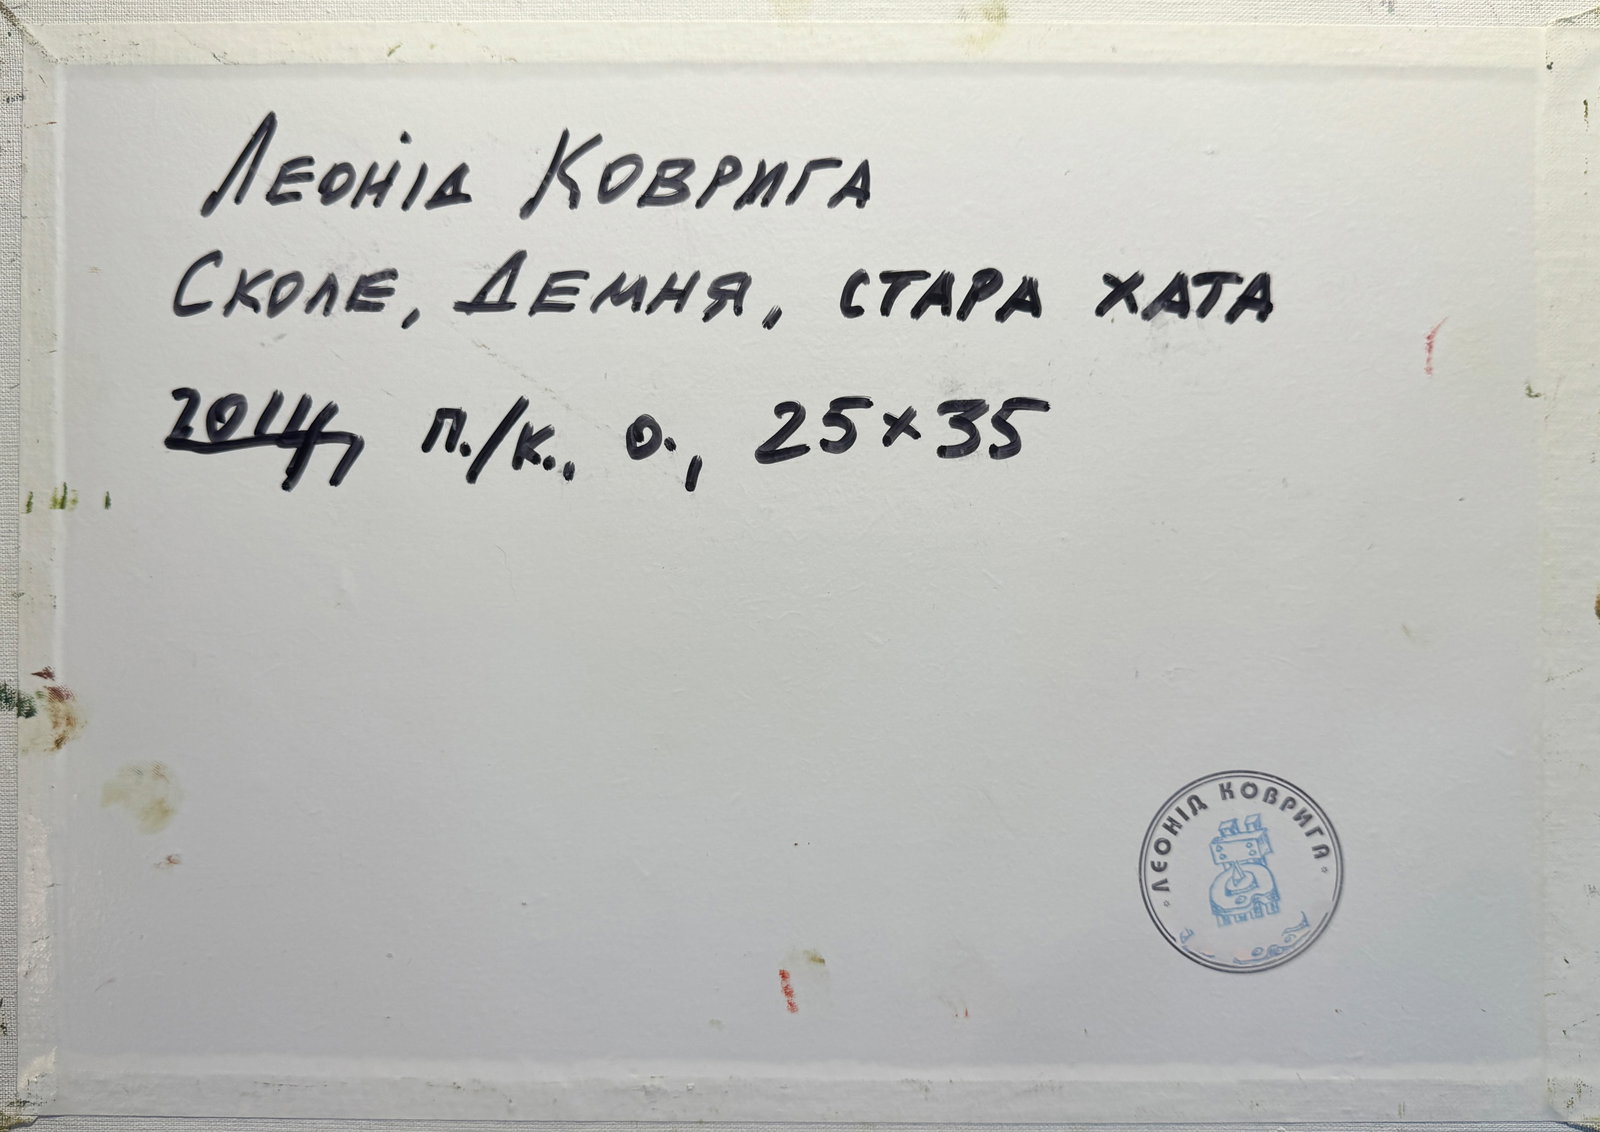 Леонід Коврига
Сколе, Демня, стара хата
2014, п./к., о., 25×35
ЛЕОНІД КОВРИГА